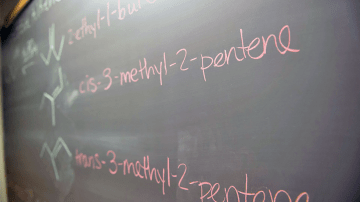 2-ethyl-1-but
cis-3-methyl-2-pentene
trans-3-methyl-2-pentene